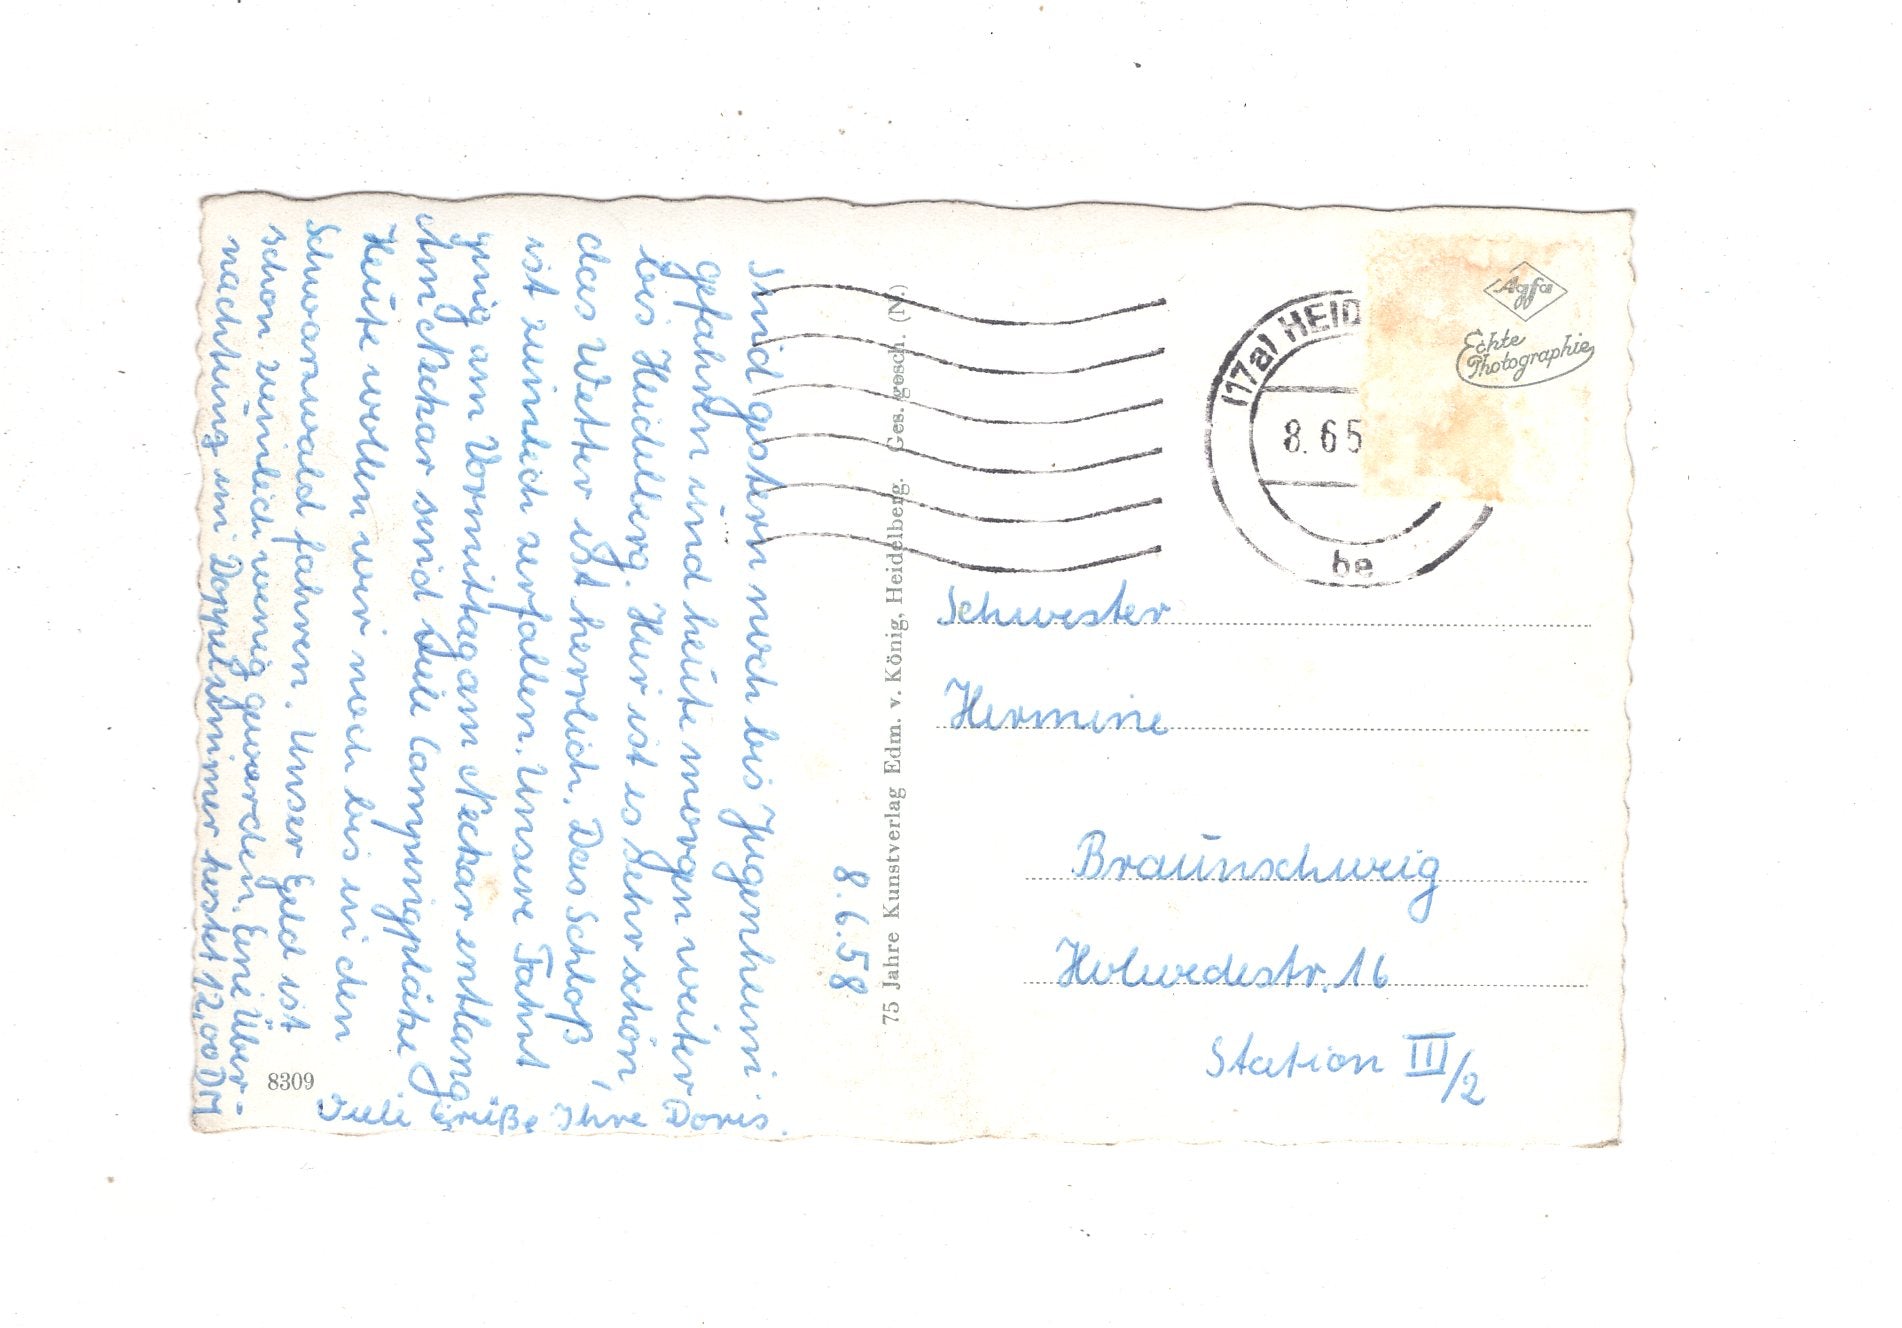 8.6.58
Sind gestern noch bis Jugenheim
gefahren und heute morgen weiter
bis Heidelberg. Hier ist es sehr schön,
das Wetter ist herrlich. Das Schloß
ist ziemlich zerfallen. Unsere Fahrt
ging am Vormittag am Neckar entlang
Am Neckar sind viele Campingplätze
Heute wollen wir noch bis in den
Schwarzwald fahren. Unser Geld ist
schon ziemlich wenig geworden. Eine Über-
nachtung im Doppelzimmer kostet 12,00 DM
Viele Grüße Ihre Doris.
8309
75 Jahre Kunstverlag Edm. v. König, Heidelberg. Ges. gesch. (N.)
(17a) HEID
8. 6 5
be
Agfa
Echte
Photographie
Schwester
Hermine
Braunschweig
Holwedestr. 16
Station III/2